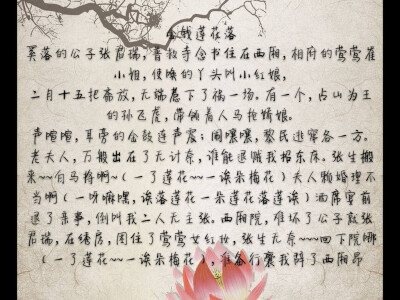 金钱莲花落
奚落的公子张君瑞，普救寺念书住在西厢，相府的莺莺崔
小姐，使唤的丫头叫小红娘，
二月十五把斋放，无端惹下了祸一场。有一个，占山为王
的孙飞虎，带领着人马抢娇娘。
声喧喧，耳旁的金鼓连声震；闹嚷嚷，黎民逃窜各一方。
老夫人，万般出在了无计奈，谁能退贼我招东床。张生搬
来~~白马将啊~（一了莲花~~一诶朵梅花）夫人赖婚理不
当啊（一呀嘛嘿，诶落莲花一朵莲花落莲诶）酒席宴前
退了亲事，倒叫我二人无主张。西厢院，难坏了公子张
君瑞，在绣房，困住了莺莺女红妆，张生无奈~~~回下院哪
（一了莲花~~一诶朵梅花），准备行囊我辞了西厢昂